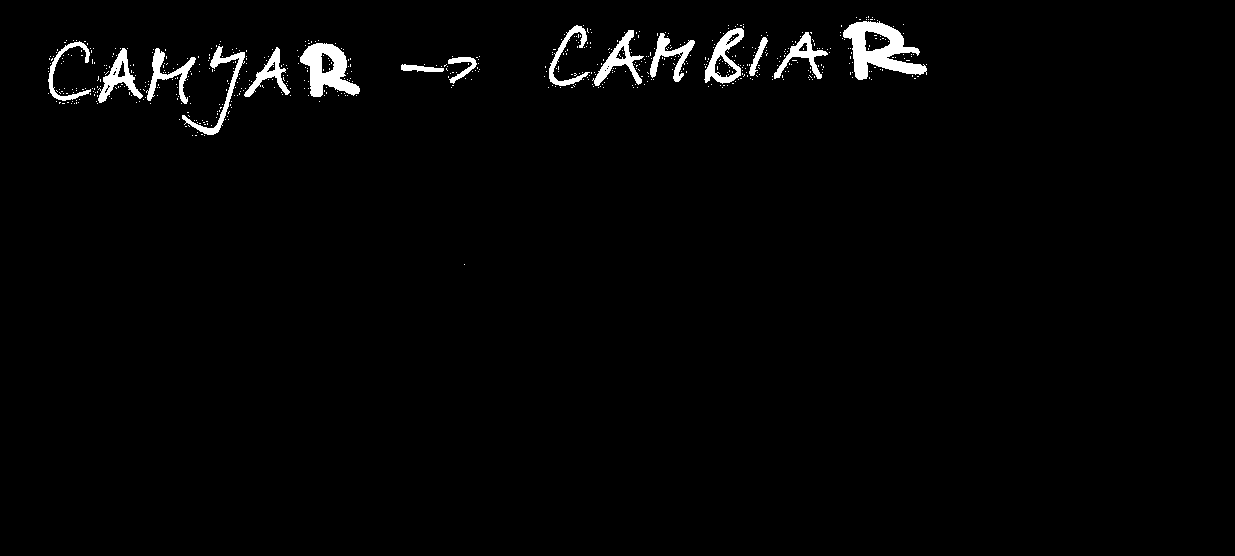 CAMYAR → CAMBIAR